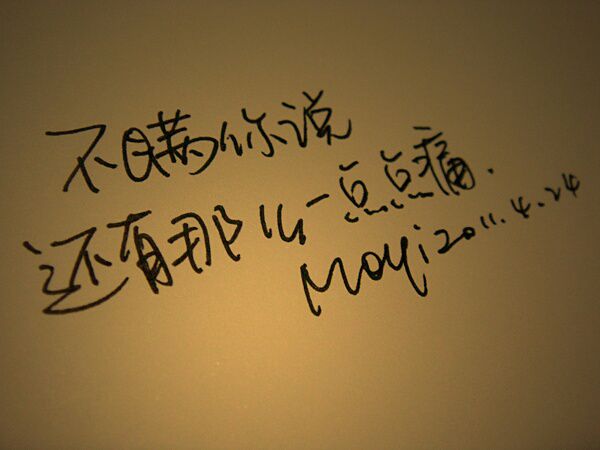 不瞒你说
还有那么一点点痛.
Moyi 2011.4.24